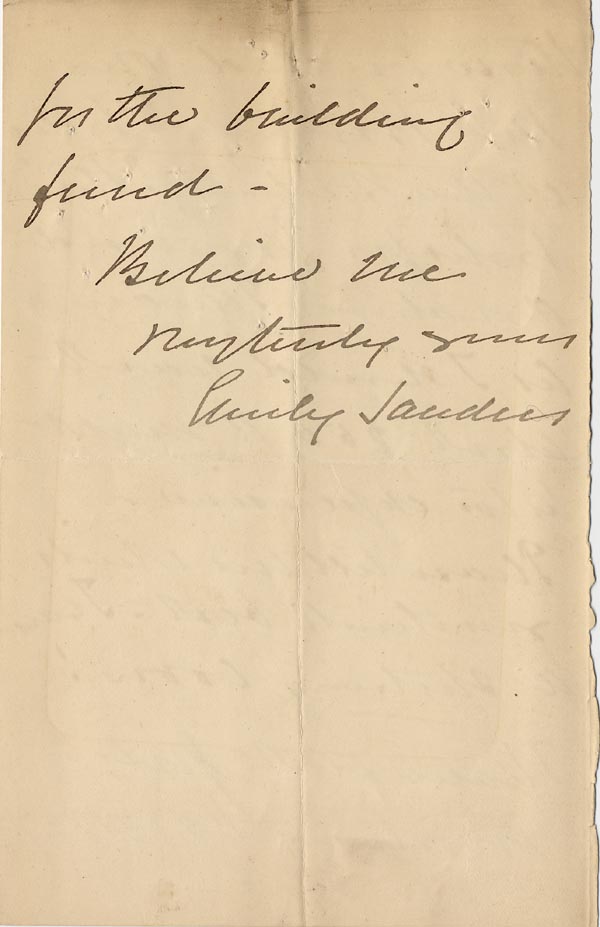 for the building
fund -
Believe me
very truly yours
Emily Sanders